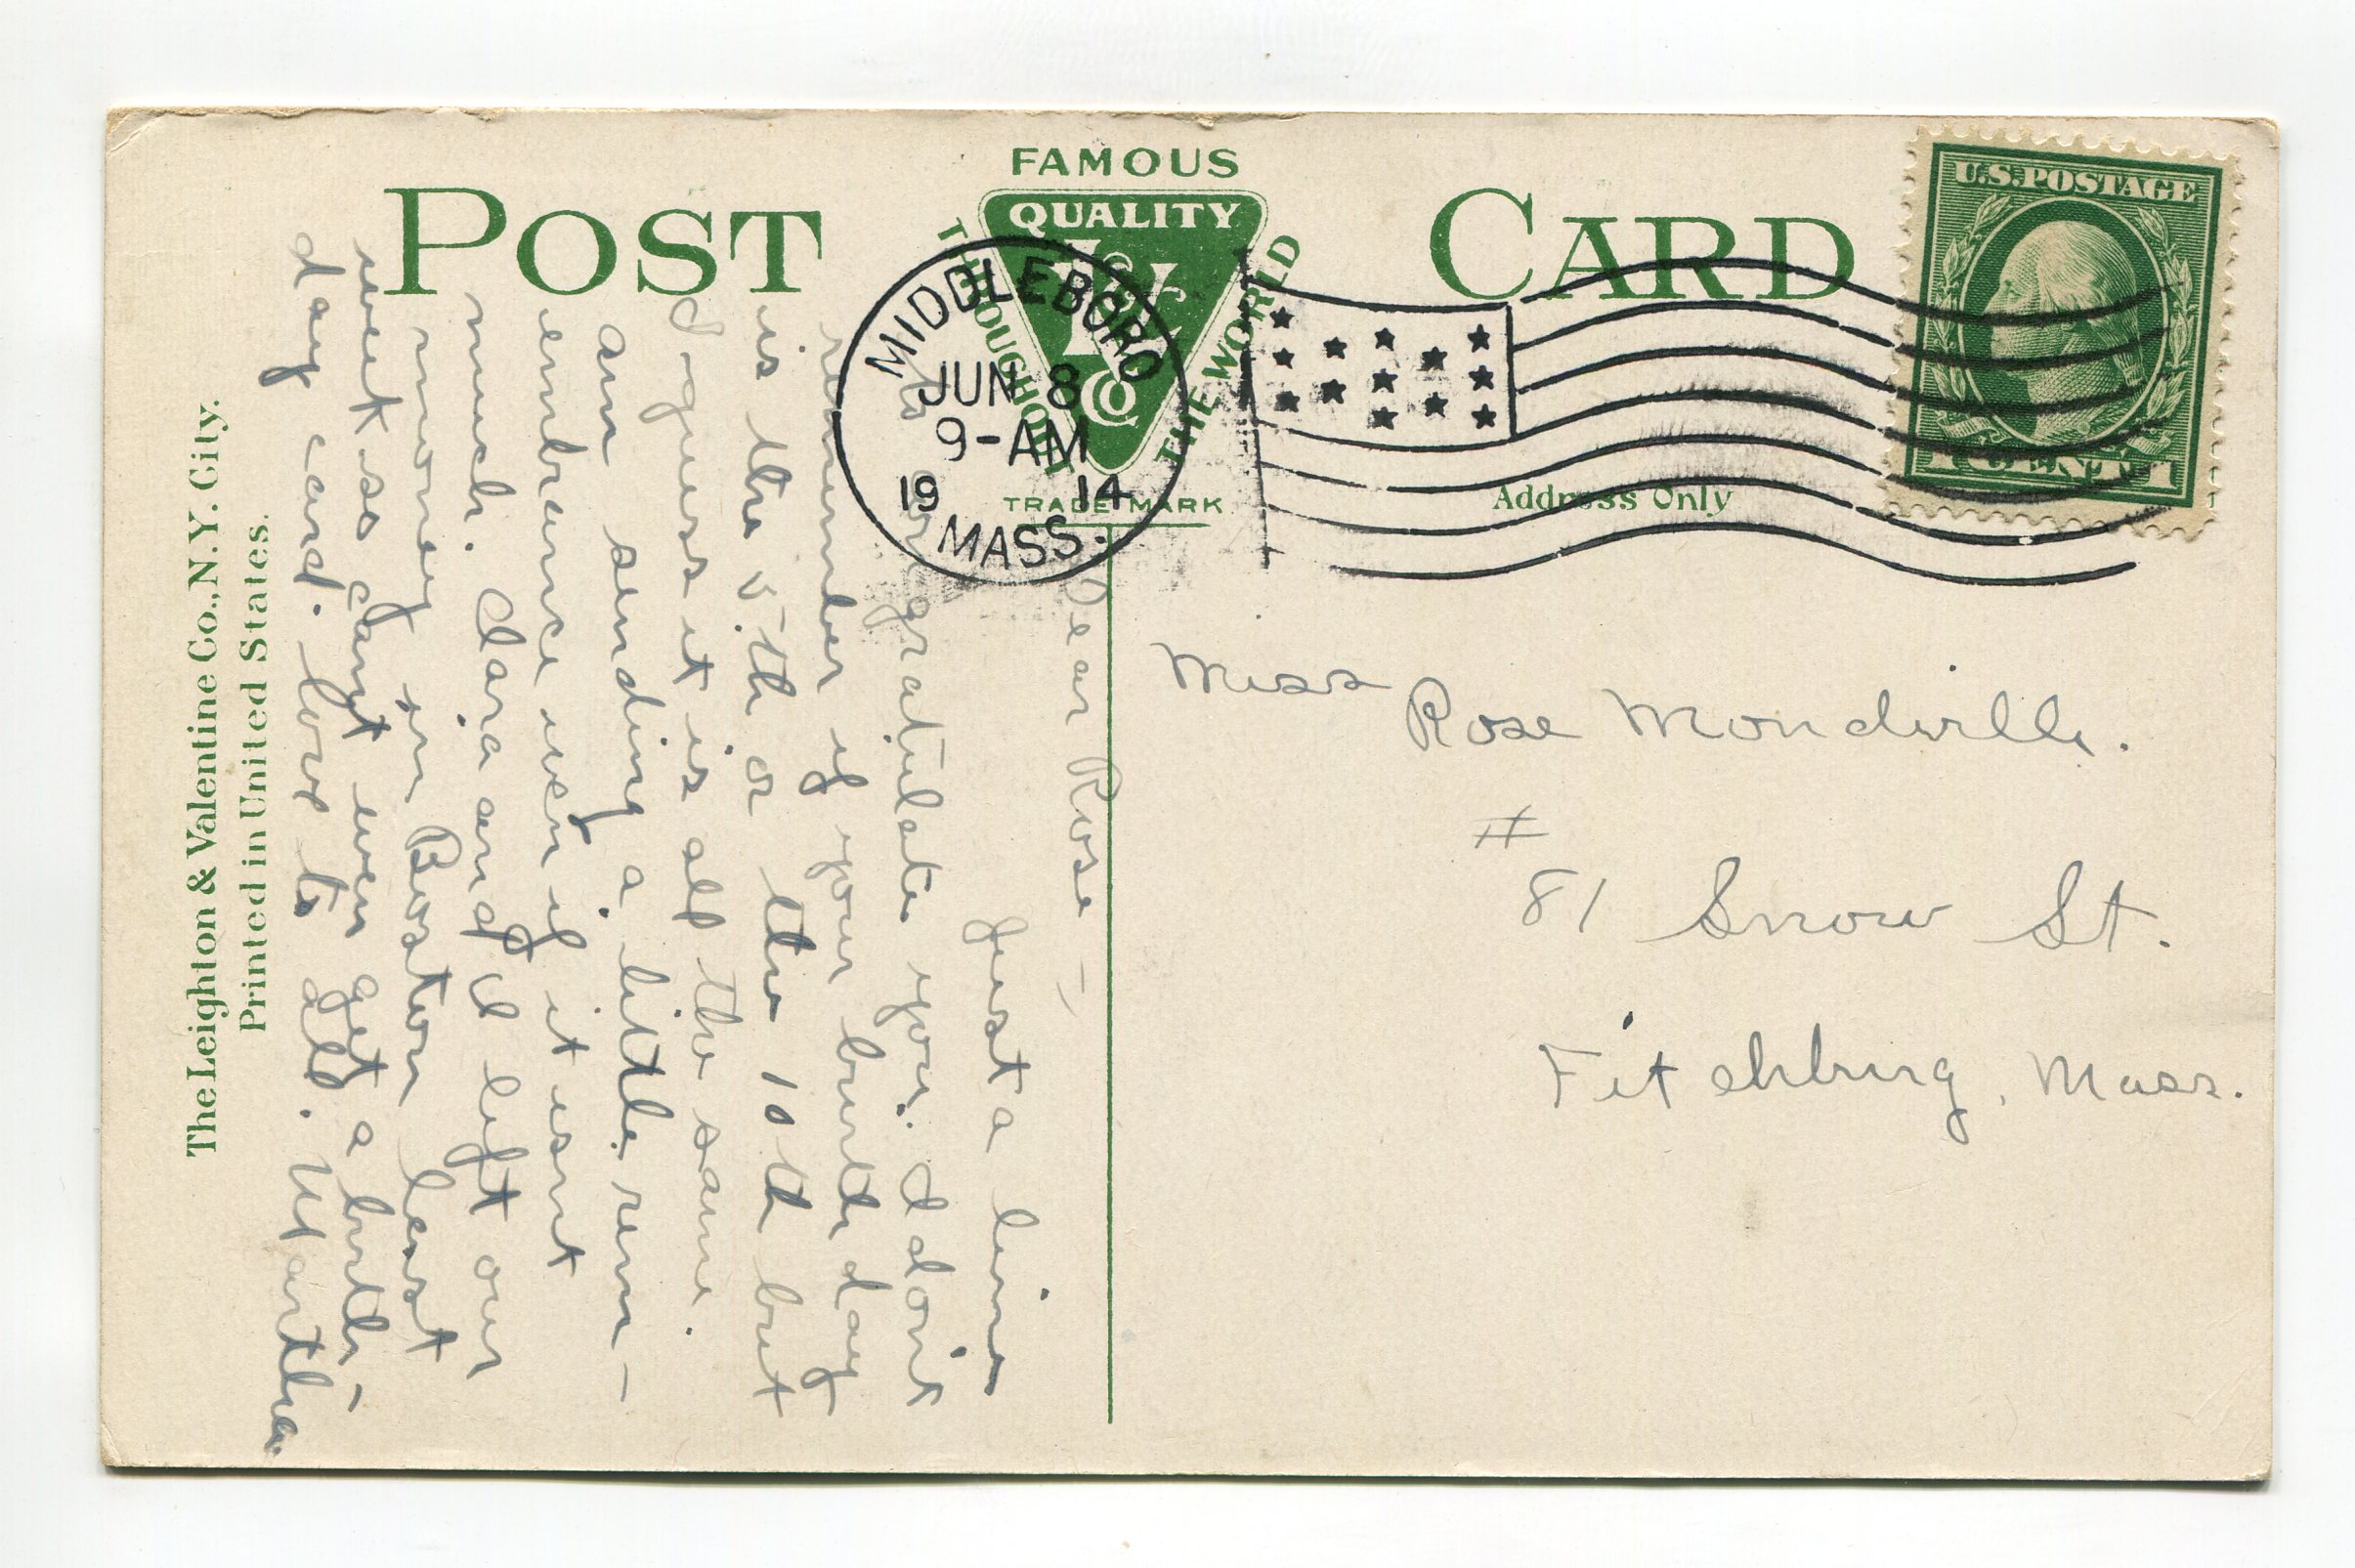 POST CARD
FAMOUS
QUALITY
THROUGHOUT THE WORLD
L & V Co
TRADE MARK
Address Only
U.S. POSTAGE
1 CENT 1
MIDDLEBORO
JUN 8
9-AM
1914
MASS.
Miss
Rose Mondville.
#
81 Snow St.
Fitchburg, Mass.
Dear Rose —
Just a line
to congratulate you. I dont
remember if your birthday
is the 5th or the 10th but
I guess it is all the same.
am sending a little rem-
embrance even if it isnt
much. Clara and I left our
money in Boston last
week so cant even get a birth-
day card. Love to all. Martha.
The Leighton & Valentine Co., N.Y. City.
Printed in United States.